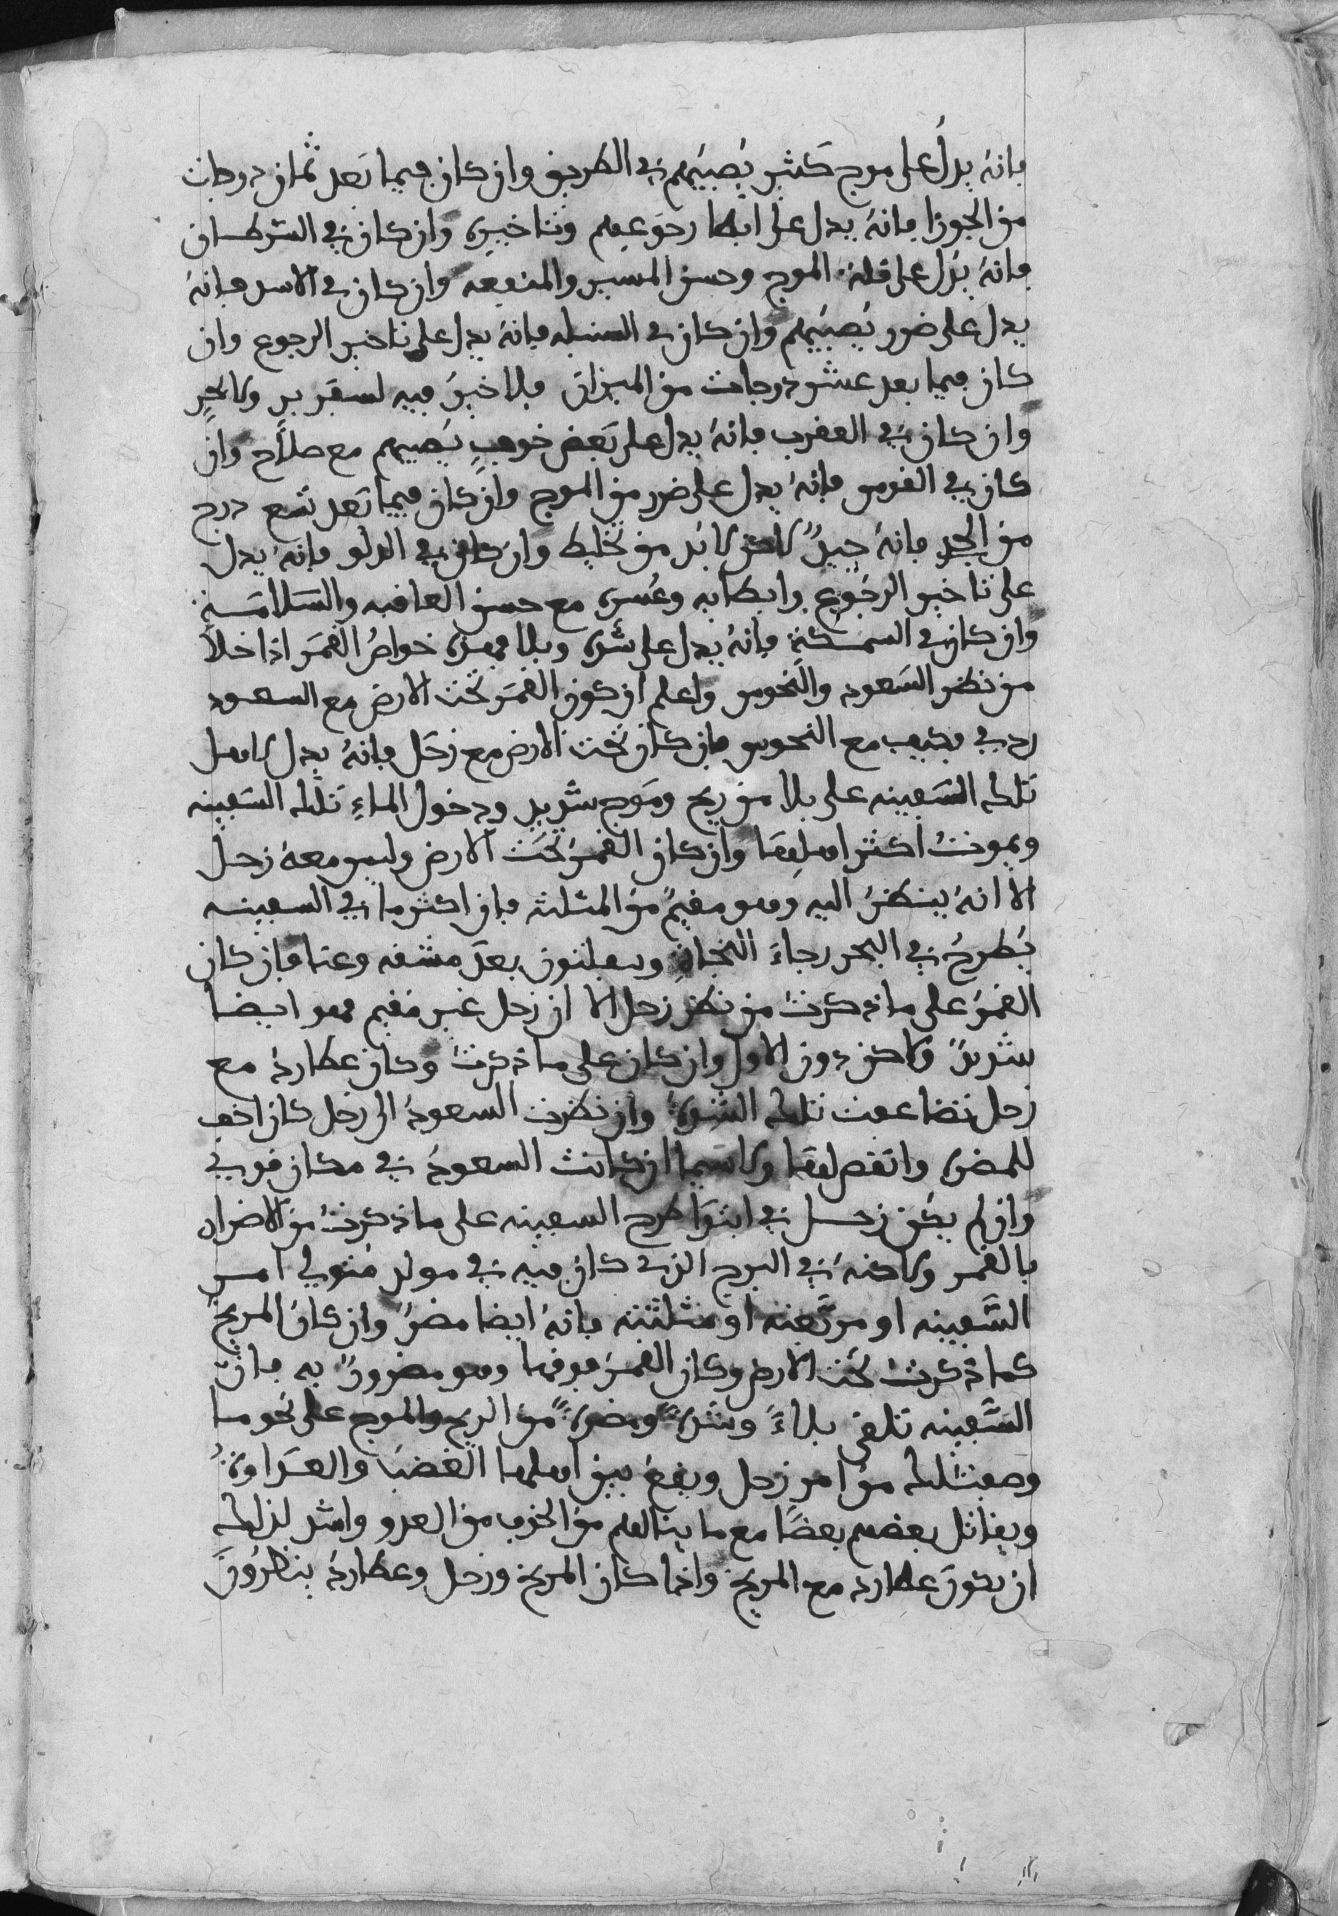 فانه يدل على موج كثير يصيبهم في الطريق وان كان فيما بعد ثمان درجات
من الجوزا فانه يدل على ابطا رجوعهم وتاخيره وان كان في السرطان
فانه يدل على قلة الموج وحسن المسير والمنفعه وان كان في الاسد فانه
يدل على ضرر يصيبهم وان كان في السنبله فانه يدل على تاخير الرجوع وان
كان فيما بعد عشر درجات من الميزان فلا خير فيه لسفر بر ولا بحر
وان كان في العقرب فانه يدل على بعض خوف يصيبهم مع صلاح وان
كان في القوس فانه يدل على ضرر من الموج وان كان فيما بعد تسع درج
من الجدي فانه جيد لاكن لا بد من تخليط وان كان في الدلو فانه يدل
على تاخير الرجوع وابطايه وعسره مع حسن العاقبه والسلامة
وان كان في السمكة فانه يدل على شره وبلا فهذه خواص القمر اذا خلا
من نظر السعود والنحوس واعلم ان كون القمر تحت الارض مع السعود
ردي فكيف مع النحوس فان كان تحت الارض مع زحل فانه يدل لاهل
تلك السفينه على بلا من ريح وموج شديد ودخول الماء تلك السفينه
ويموت اكثر اهلها وان كان القمر تحت الارض وليس معه زحل
الا انه ينظر اليه وهو مقيم من المثلثه فان اكثر ما في السفينه
يطرح في البحر رجاء النجاة ويفلتون بعد مشقه وعنا فان كان
القمر على ما ذكرت من نظر زحل الا ان زحل غير مقيم فهو ايضا
شديد ولاكن دون الاول وان كان على ما ذكرت وكان عطارد مع
زحل تضاعفت تلك الشدة وان نظرت السعود الى زحل كان اخف
للمضره وانقص لها ولاسيما ان كانت السعود في مكان قوي
وان لم يكن زحل في ابتدا طرح السفينه على ما ذكرت من الاضرار
بالقمر ولاكنه في البرج الذي كان فيه في مولد متولي امر
السفينه او مربعته او مثلثته فانه ايضا مضر وان كان المريخ
كما ذكرت تحت الارض وكان القمر فوقها وهو مضرور به فان
السفينه تلقى بلاء وشدة ومضرة من الريح والموج على نحو ما
وصفت لك من امر زحل ويقع بين اهلها الغضب والعداوة
ويقاتل بعضهم بعضا مع ما ينالهم من الخوف من العدو واشد لذلك
ان يكون عطارد مع المريخ واذا كان المريخ وزحل وعطارد ينظرون